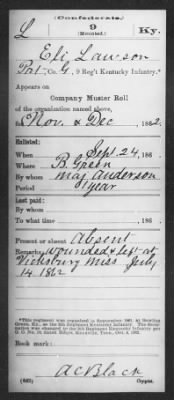 (Confederate.)
L 9 Ky.
(Mounted.)
Eli Lawson
Pvt., Co. G, 9 Reg't Kentucky Infantry.*
Appears on
Company Muster Roll
of the organization named above,
for Nov & Dec, 1862.
Enlisted:
When Sept 24, 186
Where B. Green
By whom Maj Anderson
Period 1 year
Last paid:
By whom
To what time 186 .
Present or absent Absent
Remarks: Wounded & left at
Vicksburg Miss July
14 1862
Book mark:
A C Black
(642) Copyist.